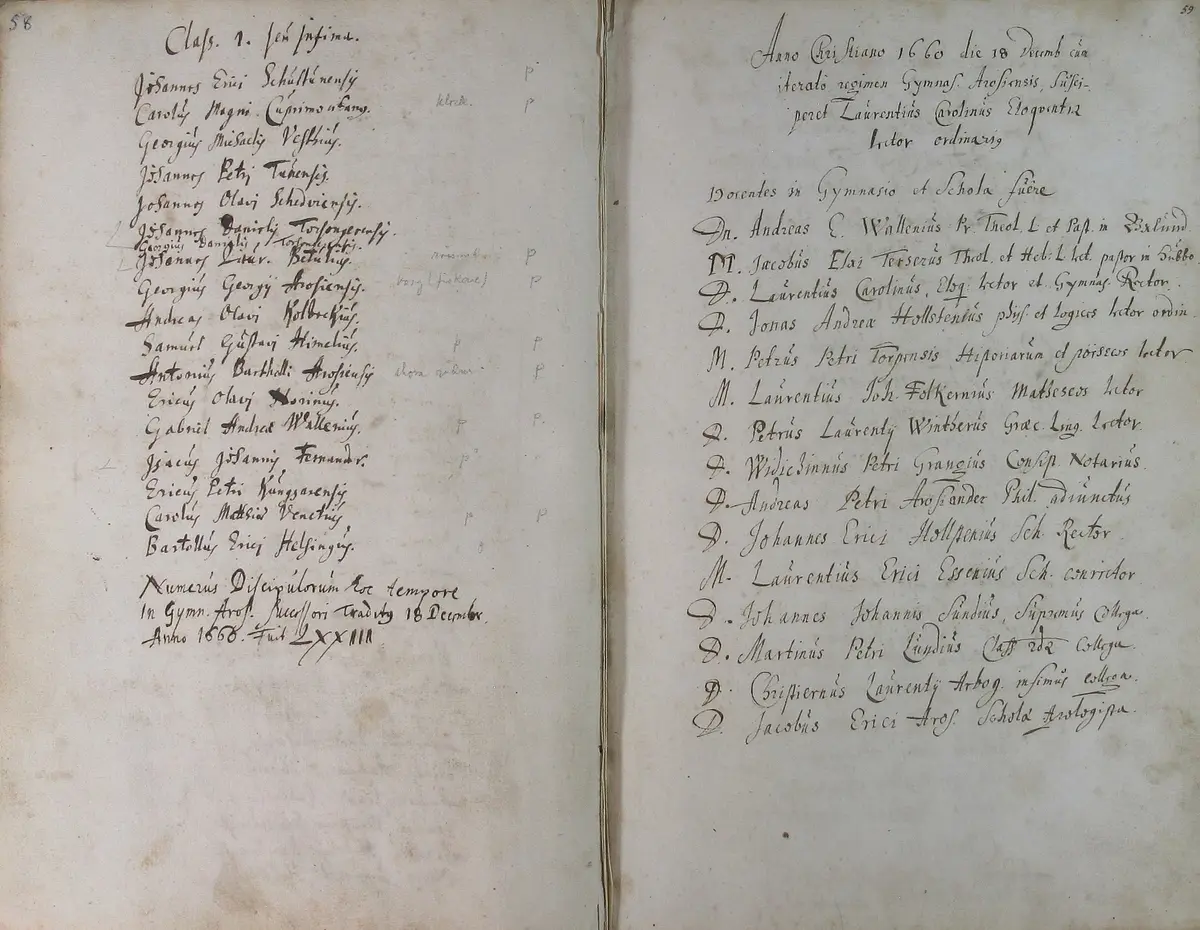 58
Class. 1. seu infima.
Johannes Erici Schultunensis
Carolus Magni Cuprimontang.
p
Georgius Michaelis Vestius.
Johannes Petri Tunensis.
Johannes Olavi Schedviensis.
Johannes Danielis Torsongerensis.
Georgius Danielis Torsongerensis.
Johannes Laur. Betulius.
p
Georgius Georgij Arosiensis.
p
Andreas Olavi Kolbeckius.
Samuel Gustavi Himelius.
p p
Antonius Barthelli Arosiensis
p
Ericus Olavj Norinus.
Gabriel Andreæ Wallenius.
p p
Isacus Johannis Fernander.
p
Ericus Petri Kungzarensis
Carolus Matthiæ Venetius
p p
Bartollus Ericj Helsingus.
Numerus Discipulorum hoc tempore
in Gymn. Aros. successori tradity 18 December.
Anno 1660. Fuit LXXIIII
59
Anno Christiano 1660 die 18 Decemb cum
iterato regimen Gymnas. Arosiensis, susci-
peret Laurentius Carolinus Eloquentiæ
Lector ordinariq
Docentes in Gymnasio et Schola fuere
Dn. Andreas C. Wallenius Pr. Theol. L et Past. in
M. Jacobus Esai Terserus Theol. et Heb. L Lect. pastor in Hubbo
D. Laurentius Carolinus, Eloq. Lector et Gymnas. Rector.
D. Jonas Andreæ Hollstenius phys. et Logices Lector ordin.
M. Petrus Petri Torpensis Historiarum et poiseos Lector
M. Laurentius Joh. Folkernius Matheseos Lector
D. Petrus Laurentij Wintherus Græc. Ling. Lector.
D. Widichinnus Petri Grangius Consist. Notarius.
D. Andreas Petri Arosiander Phil. adiunctus
D. Johannes Erici Hollstenius Sch. Rector
M. Laurentius Erici Essenius Sch. conrector
D. Johannes Johannis Sundius, Supremus Collega.
D. Martinus Petri Lundius Class 2dæ Collega.
D. Christiernus Laurentij Arbog. infimus collega.
D. Jacobus Erici Aros. Scholæ Apologista.